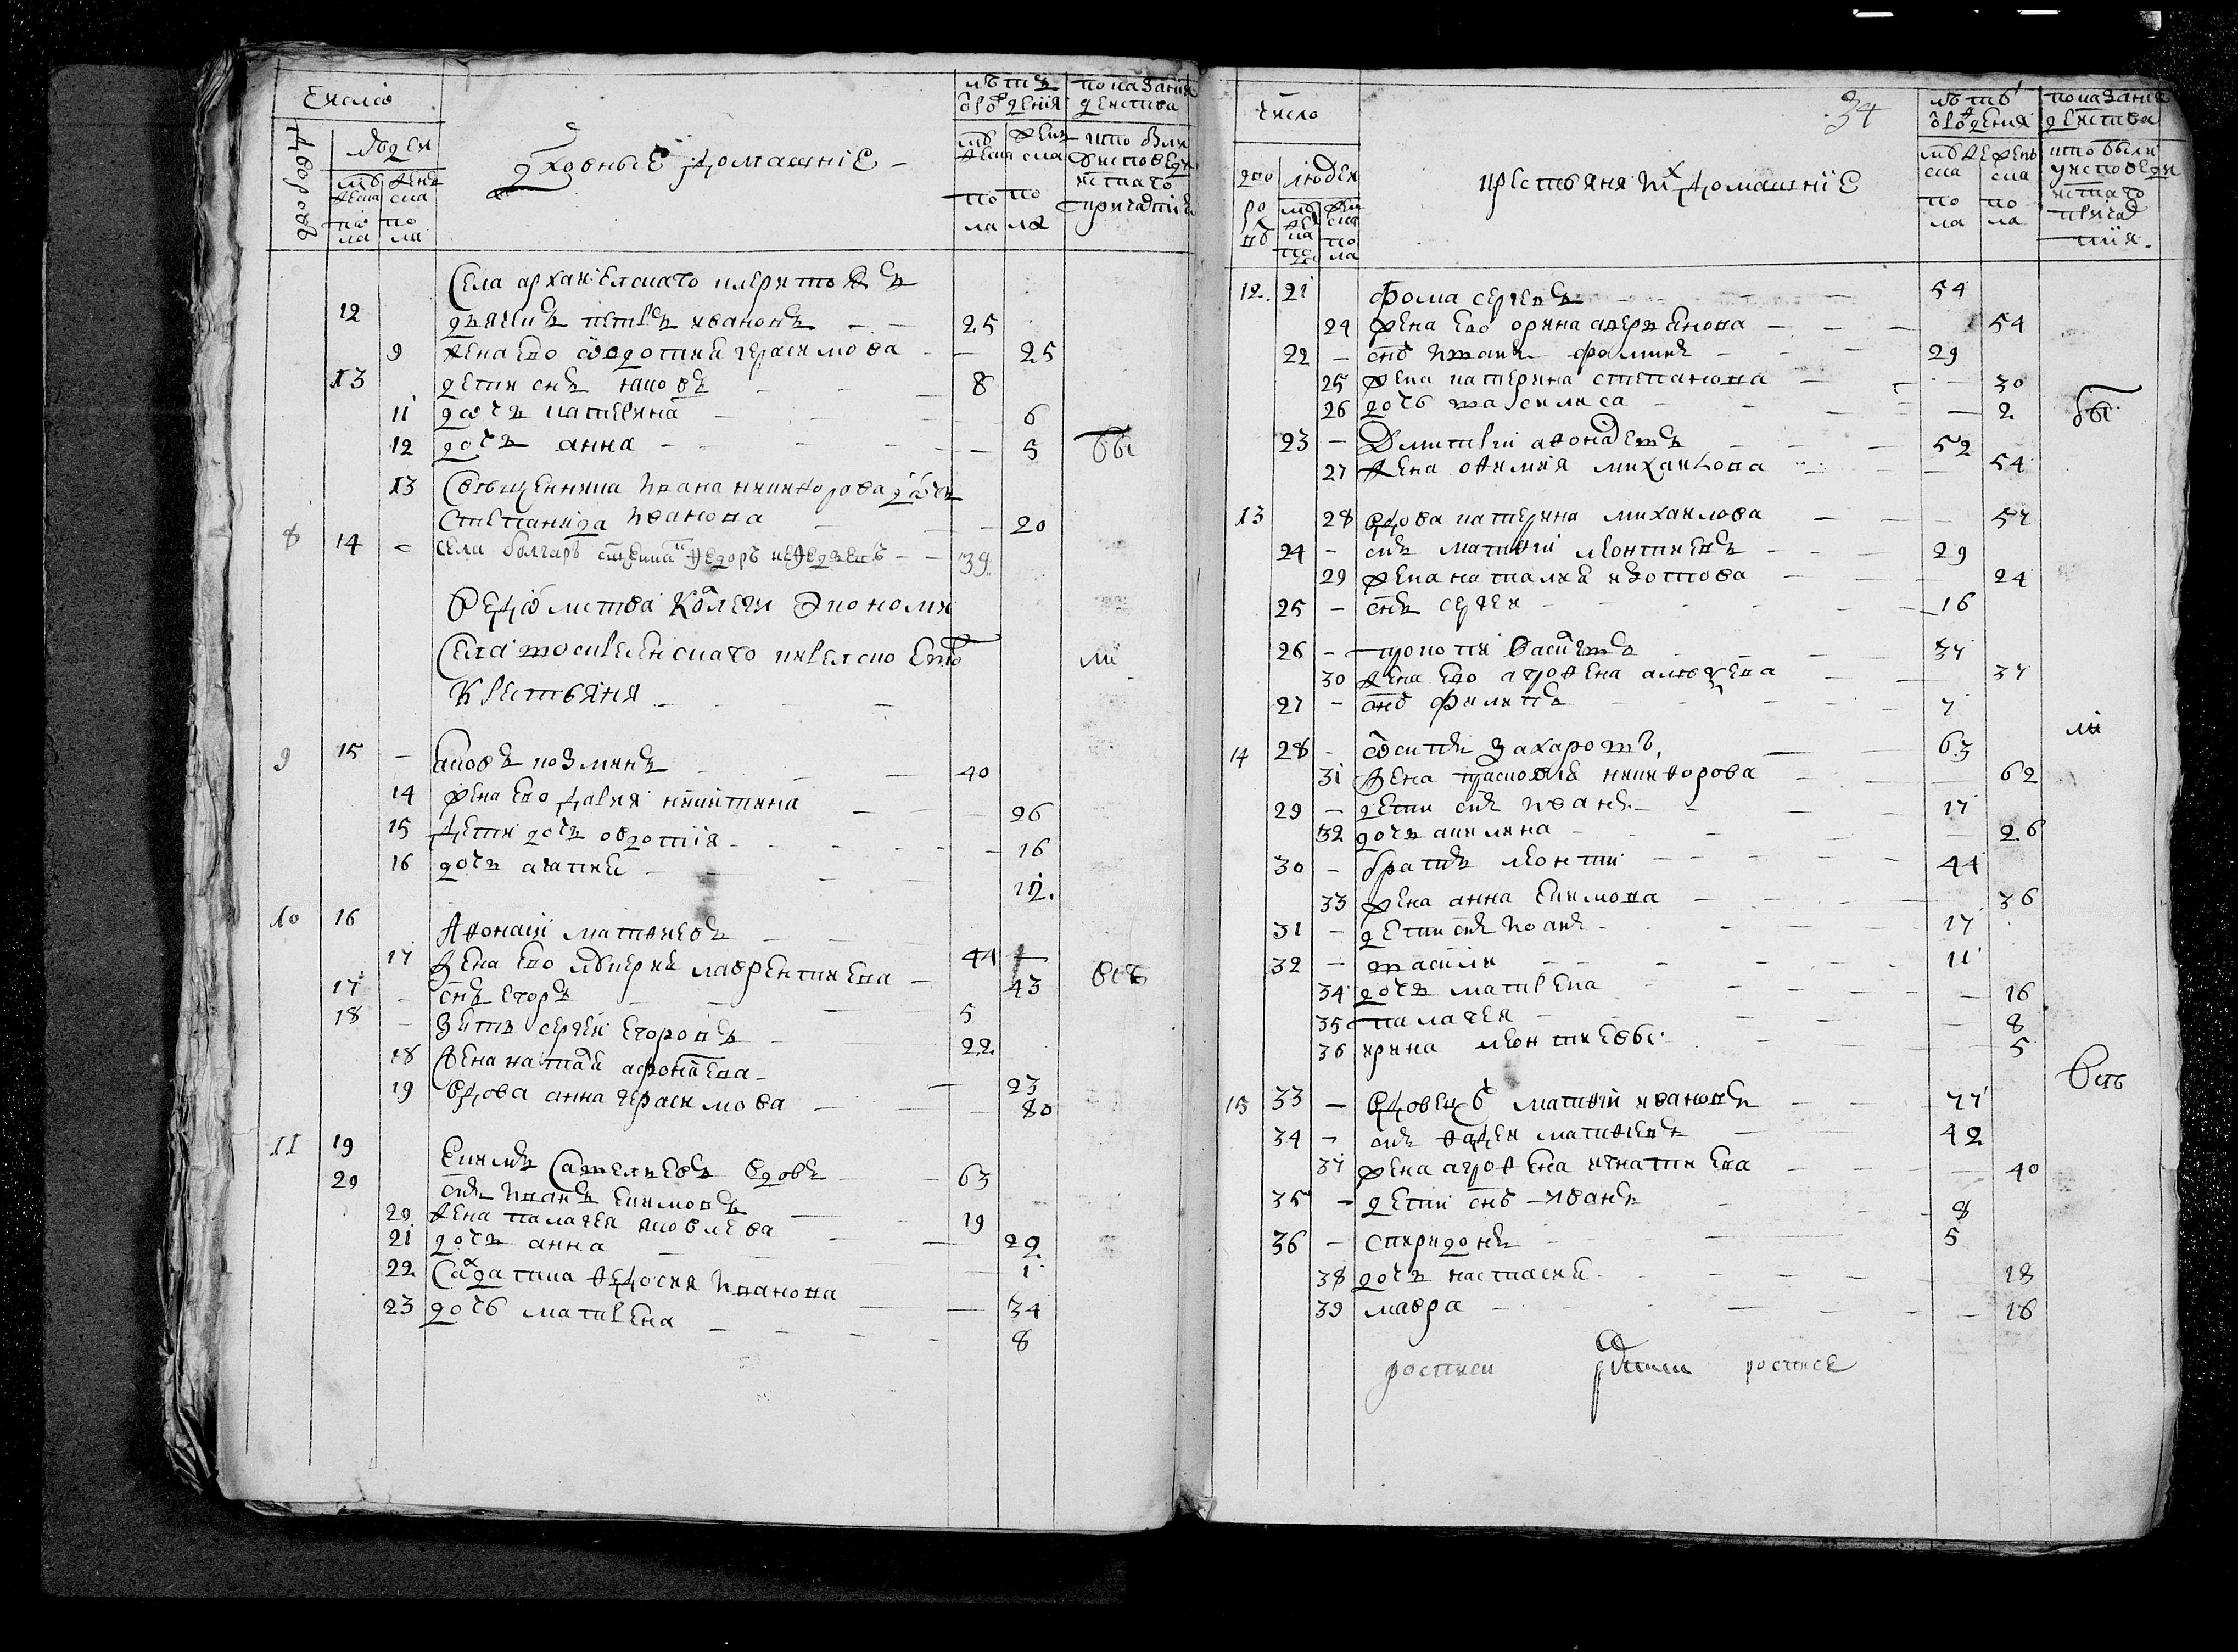 Число
Дворовъ
Людей
мужеска пола
женска пола
Духовные домашние
лѣтъ от рождения
мужеска пола
женска пола
показание действа
кто были у исповеди и святаго причастия
Села архангелскаго
12 дьячикъ петръ ивановъ 25
9 жена ево овдотия герасимова 25
13 дети снъ яковъ 8
11 дочь катерина 6
12 дочь анна 5 бы
13 Священника ивана никифорова дочь
Степанида Иванова 20
8 14 села болгаръ Федоръ 39
Ведомства Колеги Экономи
Села ли
Крестьяня
9 15 Яковъ козминъ 40
14 жена ево дария никитина 26
15 дети дочь овдотия 16
16 дочь агапия 12.
10 16 Афонасий матвиевъ 44
17 жена ево лукерия лаврентиева 43 всѣ
17 снъ егоръ 5
18 Зять сергей егоровъ 22
18 жена наталя афонасиева 23
19 вдова анна герасимова 80
11 19 Екимъ Савелиевъ вдовъ 63
20 снъ иванъ екимовъ 19
20 жена палагея яковлева 20
21 дочь анна 1
22 Салдатка федосия иванова 34
23 дочь матрена 8
34
число
дворовъ
людей
мужеска пола
женска пола
крестьяня и их домашние
лѣтъ от рождения
мужеска пола
женска пола
показание действа
кто были у исповеди и святаго причастия.
12. 21 Фома сергеевъ 54
24 жена ево орина аверьянова 54
22 снъ иванъ фоминъ 29
25 жена катерина степанова 30
26 дочь василиса 2 бы
23 Дмитрий афонасьевъ 52
27 жена офимия михаилова 54
13 28 вдова катерина михаилова 57
24 снъ матвий леонтиевъ 29
29 жена наталия изотова 24
25 снъ сергей 16
26 прокопий васильевъ 37
30 жена ево агрофена алексеева 37
27 снъ филипъ 7
ли
14 28 осипъ захаровъ 63
31 жена прасковия никифорова 62
29 дети снъ иванъ 17
32 дочь акилина 26
30 братъ леонтий 41
33 жена анна екимова 36
31 дети снъ иванъ 17
32 василий 11
34 дочь матрена 16
35 палагея 8
36 ирина леонтиевы 5
всѣ
15 33 вдовецъ матвий ивановъ 77
34 снъ фадей матвиевъ 42
37 жена агрофена игнатиева 40
35 дети снъ иванъ 8
36 спиридонъ 5
38 дочь настасия 18
39 мавра 16
росписи росписе